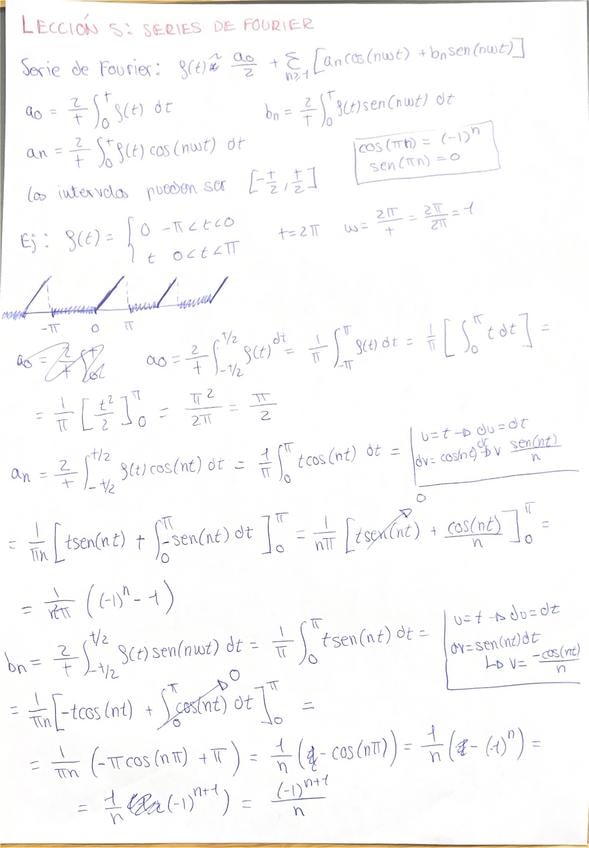 LECCIÓN 5: SERIES DE FOURIER
Serie de Fourier: f(t) ≈ a₀/2 + Σ_{n≥1} [aₙcos(nωt) + bₙsen(nωt)]
a₀ = 2/T ∫₀ᵀ f(t) dt    bₙ = 2/T ∫₀ᵀ f(t)sen(nωt) dt
aₙ = 2/T ∫₀ᵀ f(t)cos(nωt) dt    cos(πn) = (-1)ⁿ
sen(πn) = 0
Los intervalos pueden ser [-T/2, T/2]
Ej: f(t) = { 0 -π<t<0    T=2π    ω = 2π/T = 2π/2π = 1
t 0<t<π
-π 0 π
a₀ = 2/T ∫_{-T/2}^{T/2} f(t) dt = 1/π ∫_{-π}^{π} f(t) dt = 1/π [∫₀^π t dt] =
= 1/π [t²/2]₀^π = π²/2π = π/2
aₙ = 2/T ∫_{-T/2}^{T/2} f(t)cos(nt) dt = 1/π ∫₀^π tcos(nt) dt = | u=t → du=dt
dv=cos(nt)dt → v sen(nt)/n
= 1/πn [tsen(nt) + ∫₀^π -sen(nt) dt]₀^π = 1/nπ [tsen(nt) → 0 + cos(nt)/n]₀^π =
= 1/n²π ((-1)ⁿ - 1)
bₙ = 2/T ∫_{-T/2}^{T/2} f(t)sen(nωt) dt = 1/π ∫₀^π tsen(nt) dt = | u=t → du=dt
dv=sen(nt)dt
↳ v = -cos(nt)/n
= 1/πn [-tcos(nt) + ∫₀^π cos(nt) dt → 0]₀^π =
= 1/πn (-πcos(nπ) + π) = 1/n ( - cos(nπ)) = 1/n ( - (-1)ⁿ) =
= 1/n ((-1)ⁿ⁺¹) = (-1)ⁿ⁺¹/n